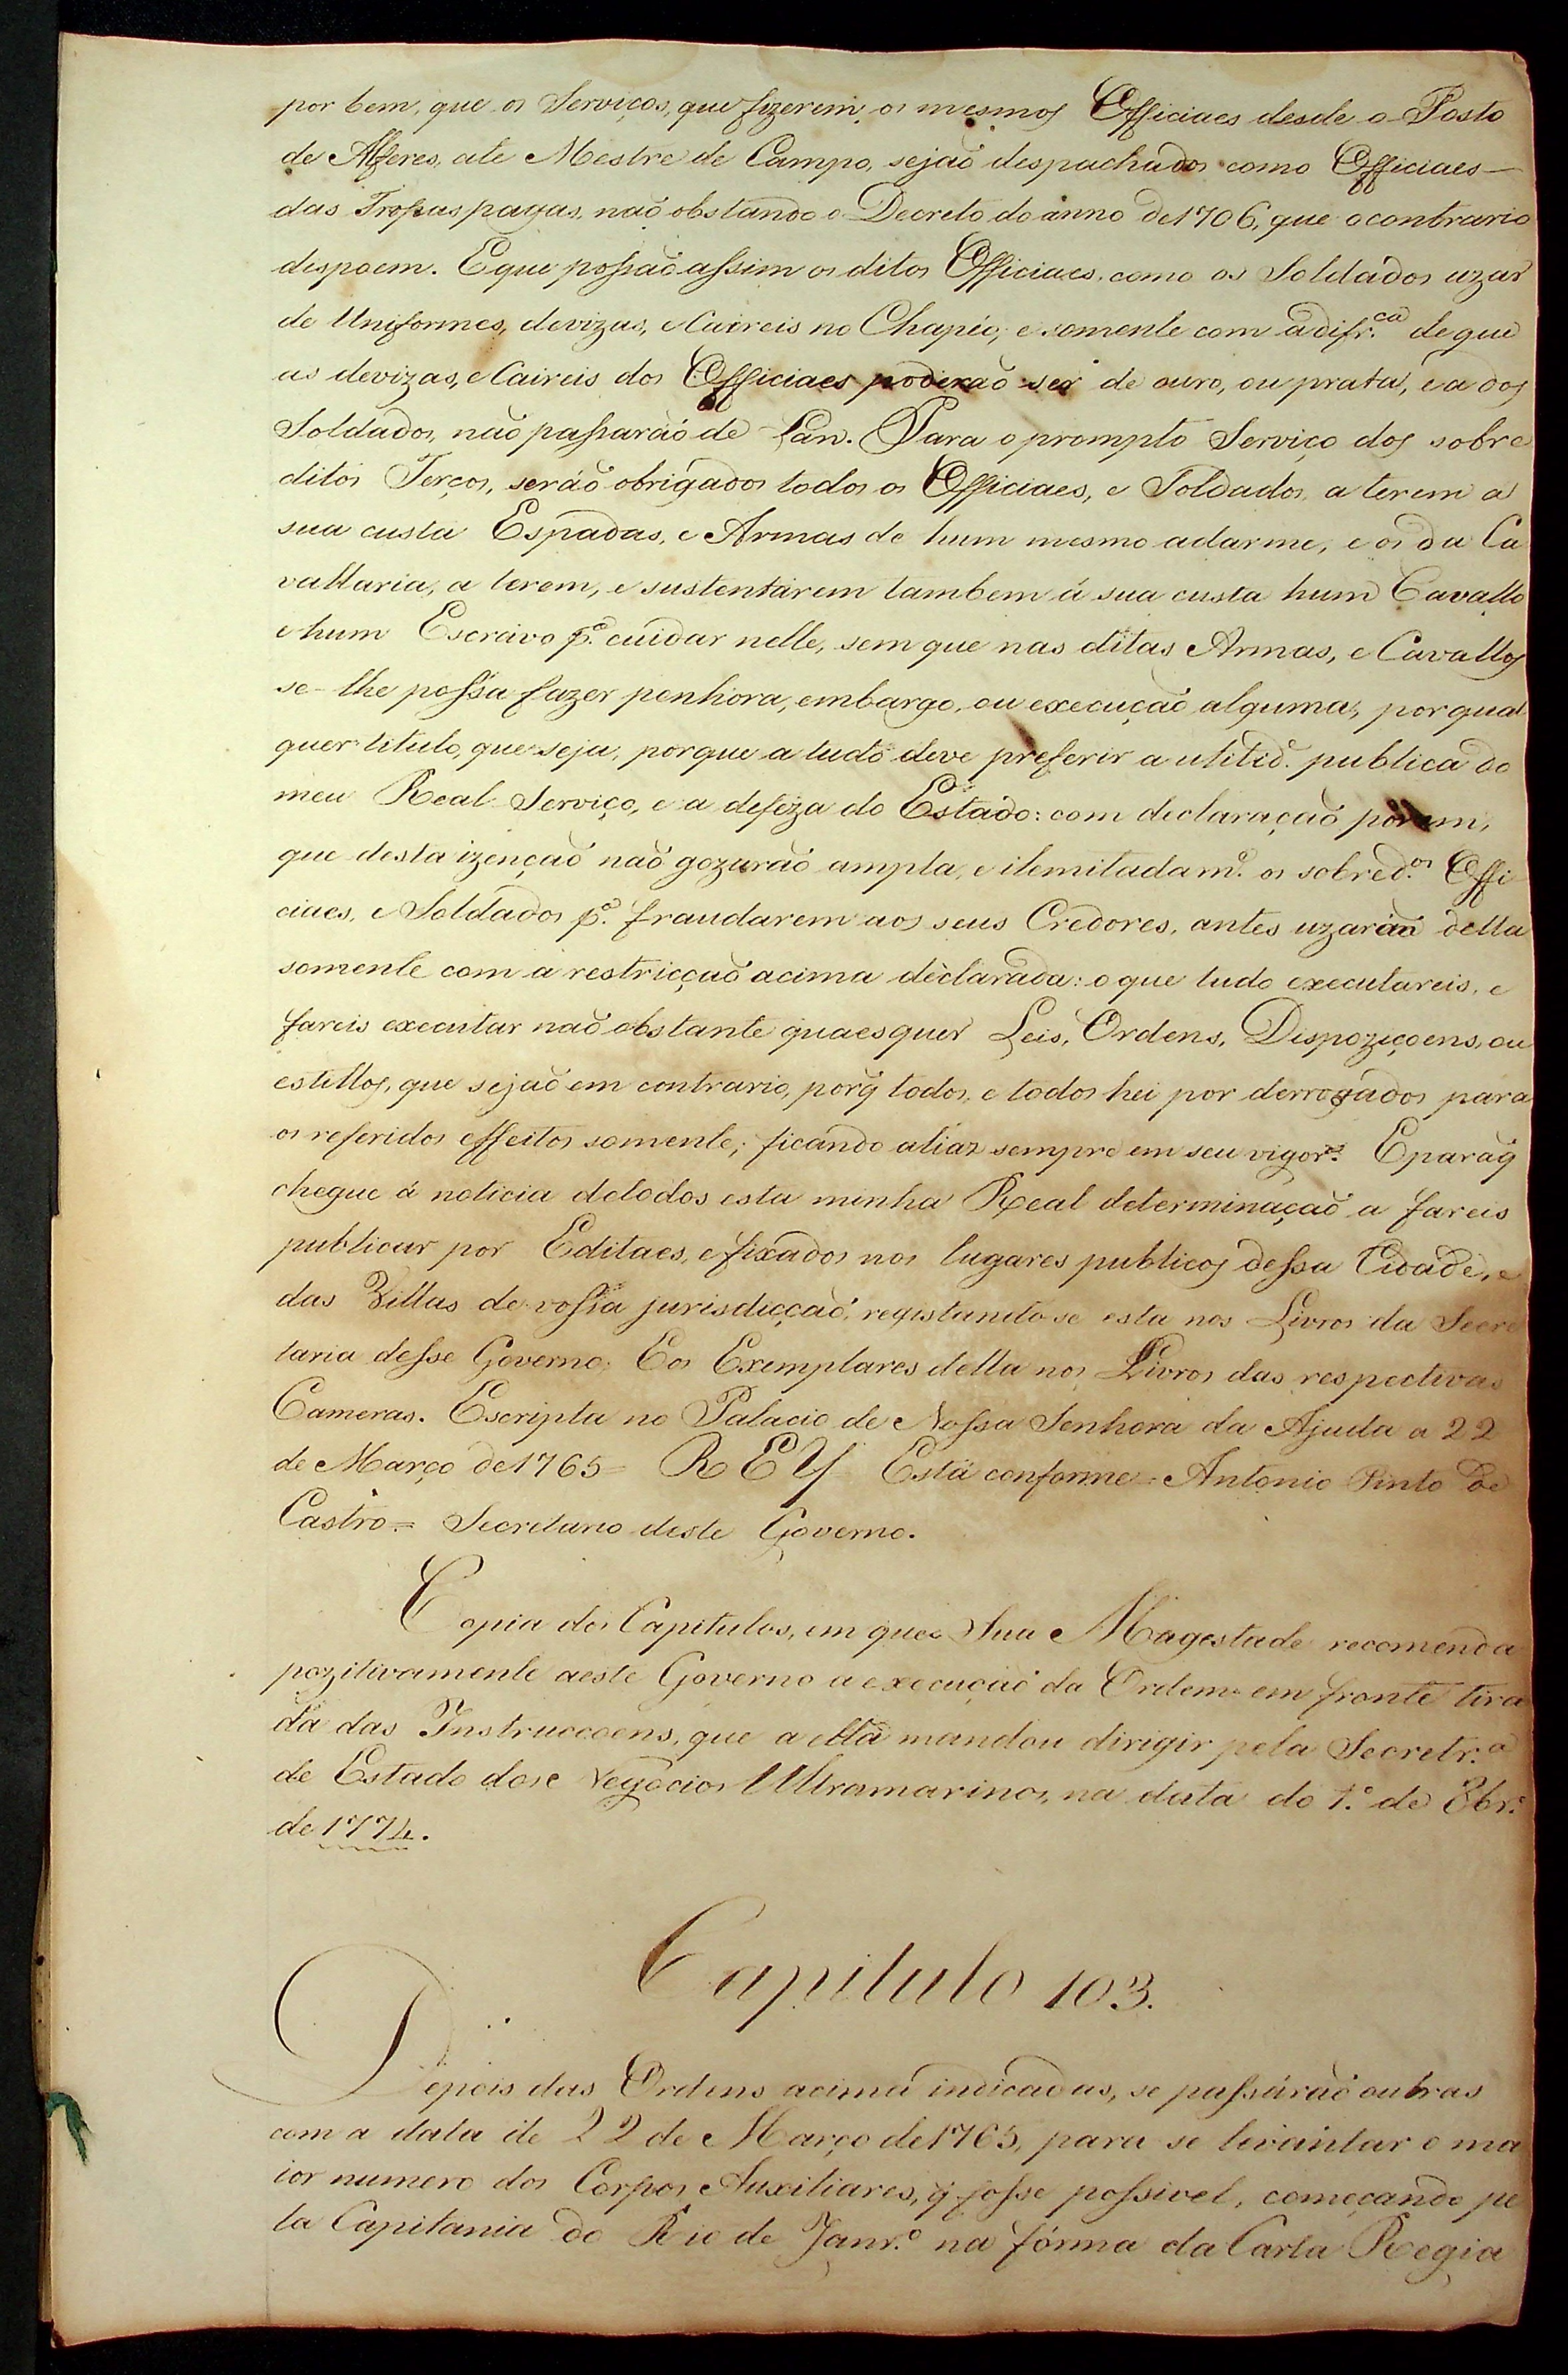 por bem, que os Serviços, que fizerem os mesmos Officiaes desde o Posto
de Alferes, ate Mestre de Campo, sejaõ despachados como Officiaes
das Tropas pagas, naõ obstando o Decreto do anno de 1706, que o contrario
dispoem. E que possaõ assim os ditos Officiaes, como os Soldados uzar
de Uniformes, devizas, e Caireis no Chapéo, e somente com a difr.ca de que
as devizas, e Caireis dos Officiaes poderaõ ser de ouro, ou prata, e a dos
Soldados, naõ passaráõ de Lan. Para o prompto Serviço dos sobre
ditos Terços, seráõ obrigados todos os Officiaes, e Soldados, a terem á
sua custa Espadas, e Armas de hum mesmo adarme, e os da Ca
vallaria, a terem, e sustentarem tambem á sua custa hum Cavallo
e hum Escravo p.ª cuidar nelle, sem que nas ditas Armas, e Cavallos
se-lhe possa fazer penhora, embargo, ou execuçaõ alguma, por qual
quer titulo, que seja, porque a tudo deve preferir a utilid.e publica do
meu Real Serviço, e a defeza do Estado: com declaraçaõ porem,
que desta izençaõ naõ gozaráõ ampla, e ilemitadam.e os sobred.os Offi
ciaes, e Soldados p.ª fraudarem aos seus Credores, antes uzaráõ della
somente com a restricçaõ acima declarada: o que tudo executareis, e
fareis executar naõ obstante quaesquer Leis, Ordens, Dispoziçoens, ou
estillos, que sejaõ em contrario, porq̃ todos, e todos hei por derrogados para
os referidos effeitos somente; ficando aliaz sempre em seu vigor. E para q̃
chegue á noticia de todos esta minha Real determinaçaõ a fareis
publicar por Editaes, e fixados nos lugares publicos dessa Cidade, e
das Villas de vossa jurisdicçaõ, registando se esta nos Livros da Secre
taria desse Governo; E os Exemplares della nos Livros das respectivas
Cameras. Escripta no Palacio de Nossa Senhora da Ajuda a 22
de Março de 1765 = REY Está conforme = Antonio Pinto de
Castro = Secretario deste Governo.
Copia dos Capitulos, em que Sua Magestade recomenda
pozitivamente a este Governo a execuçaõ da Ordem em fronte tira
da das Instruccoens, que a ella mandou dirigir pela Secretr.ª
de Estado dos Negocios Ultramarinos, na data do 1.º de 8br.º
de 1774.
Capitulo 103.
Depois das Ordens acima indicadas, se passáraõ outras
com a data de 22 de Março de 1765, para se levantar o ma
ior numero dos Corpos Auxiliares, q̃ fosse possivel, começando pe
la Capitania do Rio de Janr.º na fórma da Carta Regia